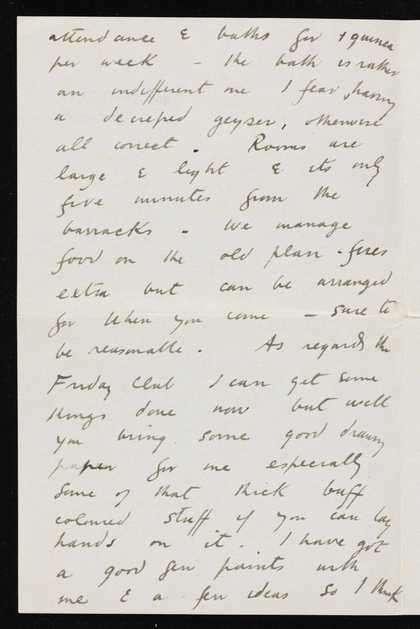 attendance & baths for 1 guinea
per week – the bath is rather
an indifferent one I fear, having
a decreped geyser, otherwise
all correct. Rooms are
large & light & its only
five minutes from the
barracks – We manage
food on the old plan – fires
extra but can be arranged
for when you come – sure to
be reasonable. As regards the
Friday Club I can get some
things done now but will
you bring some good drawing
paper for me especially
some of that thick buff
coloured stuff if you can lay
hands on it. I have got
a good few paints with
me & a few ideas so I think